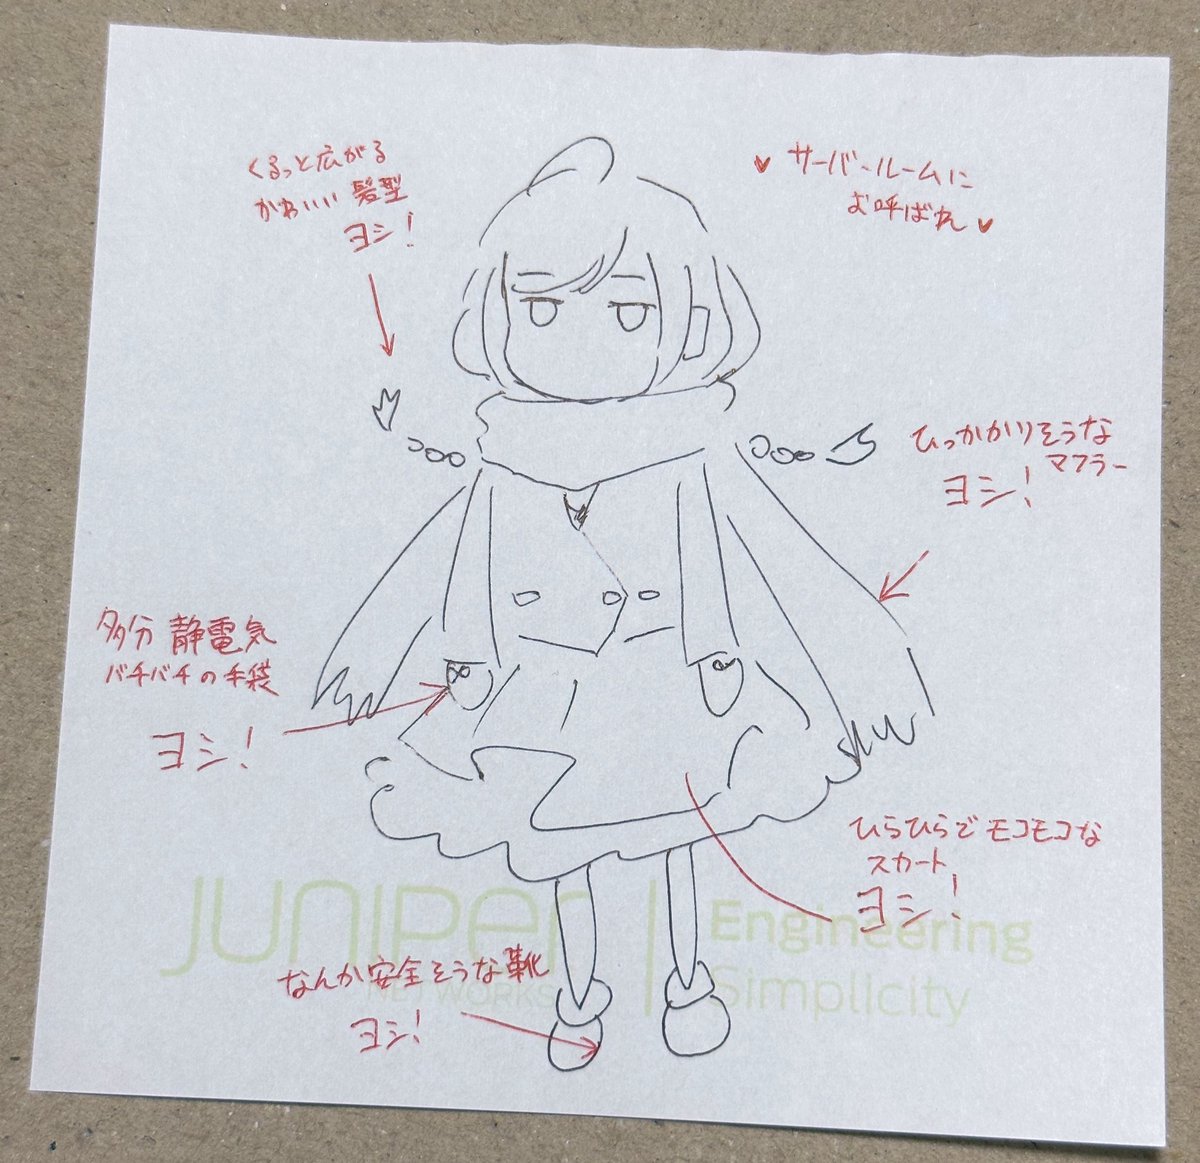 くるっと広がる
かわいい髪型
ヨシ!
♥ サーバールームに
お呼ばれ ♥
ひっかかりそうな
マフラー
ヨシ!
多分 静電気
バチバチの手袋
ヨシ!
ひらひらでモコモコな
スカート
ヨシ!
なんか安全そうな靴
ヨシ!
JUNIPER
NETWORKS
Engineering
Simplicity